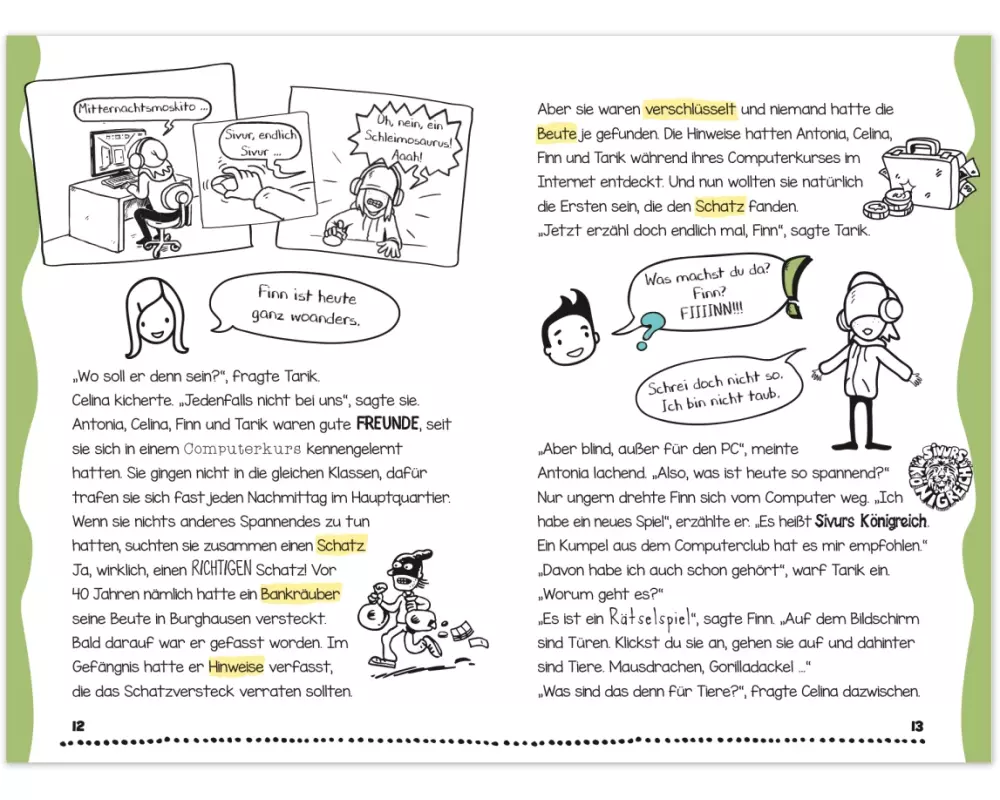 Mitternachtsmoskito ...
Sivur, endlich
Sivur ...
Uh, nein, ein
Schleimosaurus!
Aaah!
Finn ist heute
ganz woanders.
„Wo soll er denn sein?“, fragte Tarik.
Celina kicherte. „Jedenfalls nicht bei uns“, sagte sie.
Antonia, Celina, Finn und Tarik waren gute FREUNDE, seit
sie sich in einem Computerkurs kennengelernt
hatten. Sie gingen nicht in die gleichen Klassen, dafür
trafen sie sich fast jeden Nachmittag im Hauptquartier.
Wenn sie nichts anderes Spannendes zu tun
hatten, suchten sie zusammen einen Schatz.
Ja, wirklich, einen RICHTIGEN Schatz! Vor
40 Jahren nämlich hatte ein Bankräuber
seine Beute in Burghausen versteckt.
Bald darauf war er gefasst worden. Im
Gefängnis hatte er Hinweise verfasst,
die das Schatzversteck verraten sollten.
12
Aber sie waren verschlüsselt und niemand hatte die
Beute je gefunden. Die Hinweise hatten Antonia, Celina,
Finn und Tarik während ihres Computerkurses im
Internet entdeckt. Und nun wollten sie natürlich
die Ersten sein, die den Schatz fanden.
„Jetzt erzähl doch endlich mal, Finn“, sagte Tarik.
Was machst du da?
Finn?
FIIIINN!!!
?
Schrei doch nicht so.
Ich bin nicht taub.
„Aber blind, außer für den PC“, meinte
Antonia lachend. „Also, was ist heute so spannend?“
Nur ungern drehte Finn sich vom Computer weg. „Ich
habe ein neues Spiel“, erzählte er. „Es heißt Sivurs Königreich.
Ein Kumpel aus dem Computerclub hat es mir empfohlen.“
„Davon habe ich auch schon gehört“, warf Tarik ein.
„Worum geht es?“
„Es ist ein Rätselspiel“, sagte Finn. „Auf dem Bildschirm
sind Türen. Klickst du sie an, gehen sie auf und dahinter
sind Tiere. Mausdrachen, Gorilladackel ...“
„Was sind das denn für Tiere?“, fragte Celina dazwischen.
SIVURS
KÖNIGREICH
13